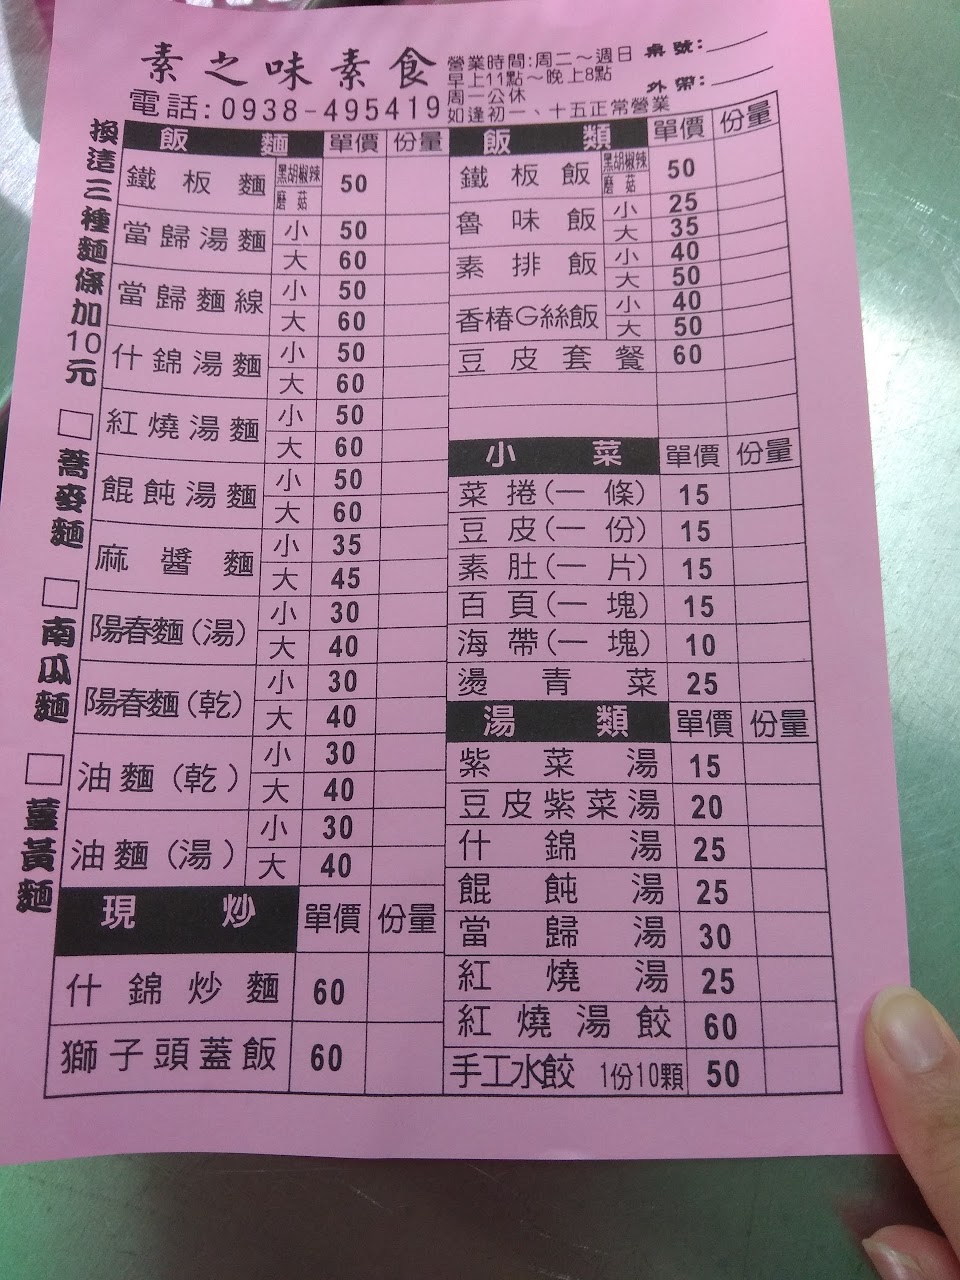 素之味素食
電話:0938-495419
營業時間:周二～週日
早上11點～晚上8點
周一公休
如逢初一、十五正常營業
桌號:
外帶:
換這三種麵條加10元
□蕎麥麵
□南瓜麵
□薑黃麵
飯麵 單價 份量
鐵板麵 黑胡椒辣 蘑菇 50
當歸湯麵 小 50
大 60
當歸麵線 小 50
大 60
什錦湯麵 小 50
大 60
紅燒湯麵 小 50
大 60
餛飩湯麵 小 50
大 60
麻醬麵 小 35
大 45
陽春麵(湯) 小 30
大 40
陽春麵(乾) 小 30
大 40
油麵(乾) 小 30
大 40
油麵(湯) 小 30
大 40
現炒 單價 份量
什錦炒麵 60
獅子頭蓋飯 60
飯類 單價 份量
鐵板飯 黑胡椒辣 蘑菇 50
魯味飯 小 25
大 35
素排飯 小 40
大 50
香椿G絲飯 小 40
大 50
豆皮套餐 60
小菜 單價 份量
菜捲(一條) 15
豆皮(一份) 15
素肚(一片) 15
百頁(一塊) 15
海帶(一塊) 10
燙青菜 25
湯類 單價 份量
紫菜湯 15
豆皮紫菜湯 20
什錦湯 25
餛飩湯 25
當歸湯 30
紅燒湯 25
紅燒湯餃 60
手工水餃 1份10顆 50